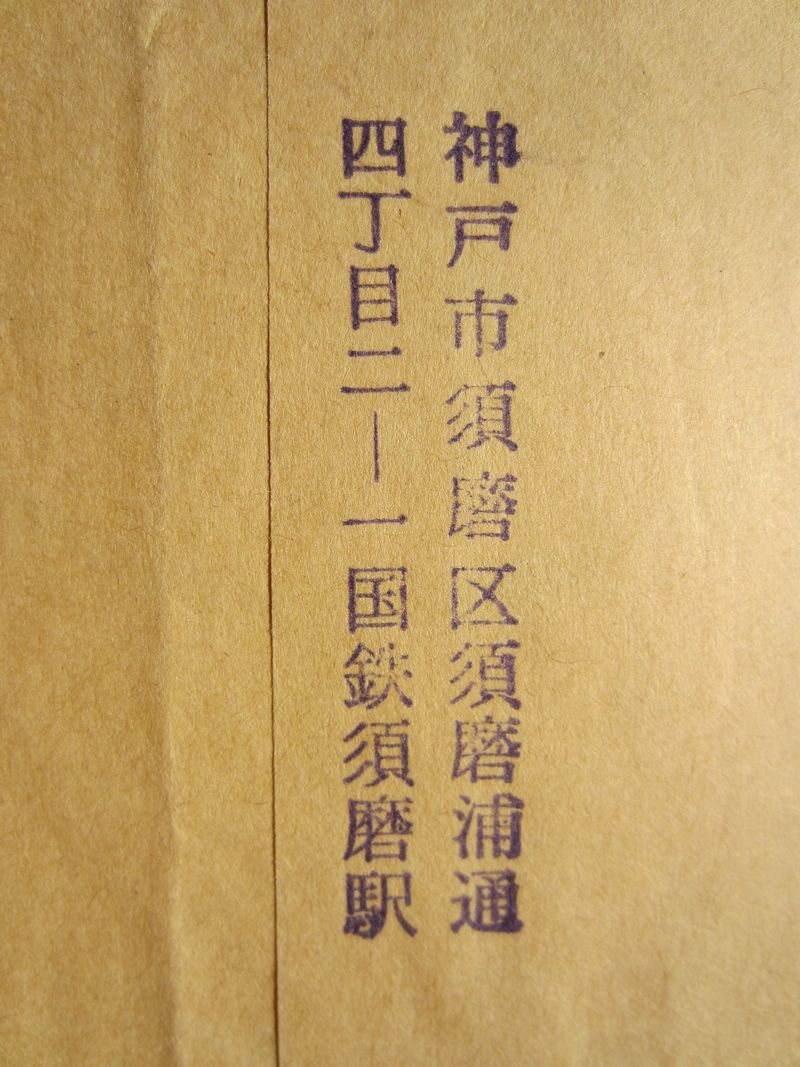 神戸市須磨区須磨浦通
四丁目二―一国鉄須磨駅